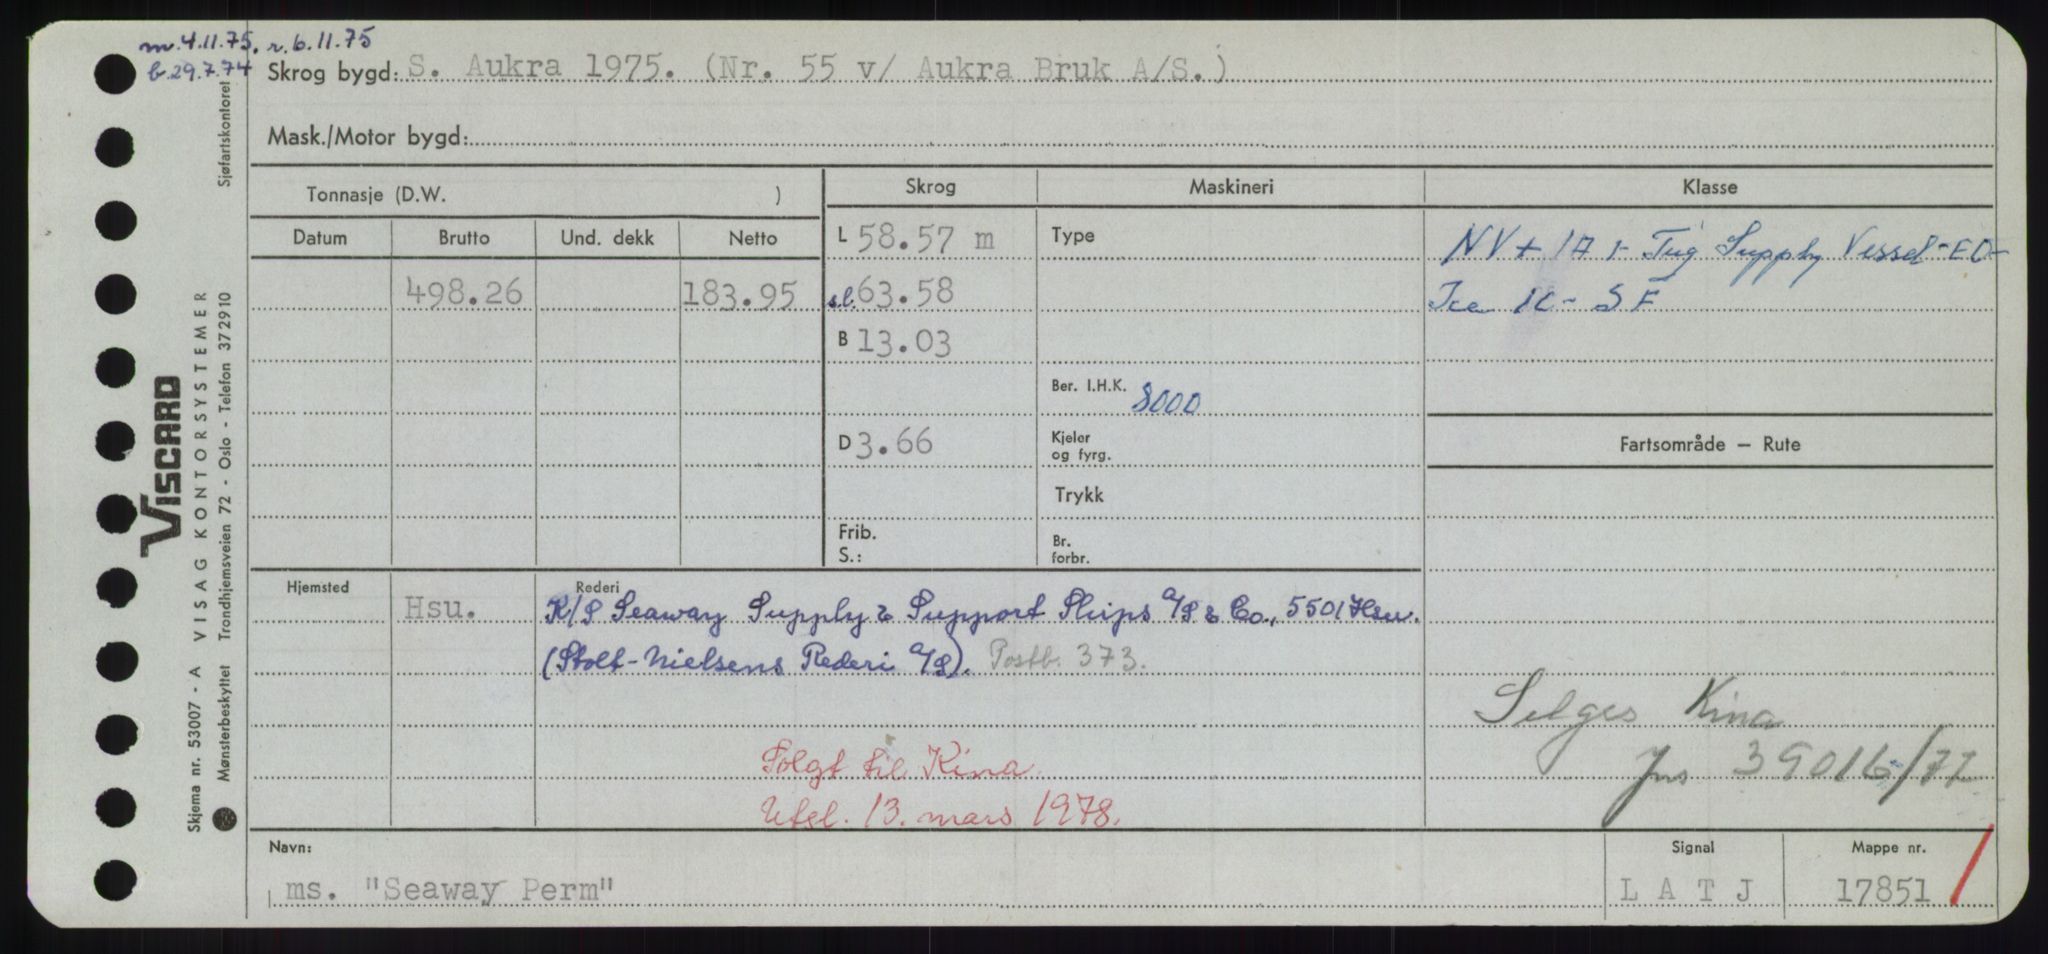 m. 4.11.75. r. 6.11.75
b. 29.7.74
Skrog bygd: S. Aukra 1975. (Nr. 55 v/ Aukra Bruk A/S.)
Mask./Motor bygd:
Tonnasje (D.W. )
Skrog Maskineri Klasse
Datum Brutto Und. dekk Netto
L 58.57 m Type NV + 1A1- Tug Supply Vessel -EO-
498.26 183.95 s.l. 63.58 Ice 1C - SF
B 13.03
Ber. I.H.K. 8000
D 3.66 Kjeler og fyrg.
Fartsområde — Rute
Trykk
Frib. S.: Br. forbr.
Hjemsted Hsu. Rederi
K/S Seaway Supply & Support Ships A/S & Co., 5501 Hsu.
(Stolt-Nielsens Rederi A/S). Postb. 373.
Selges Kina
Jns 39016/77
Solgt til Kina
Utgl. 13. mars 1978.
Navn: Signal Mappe nr.
ms. "Seaway Perm" L A T J 17851
VISCARD
Skjema nr. 53007 - A VISAG KONTORSYSTEMER
Mønsterbeskyttet Trondhjemsveien 72 - Oslo - Telefon 372910 Sjøfartskontoret